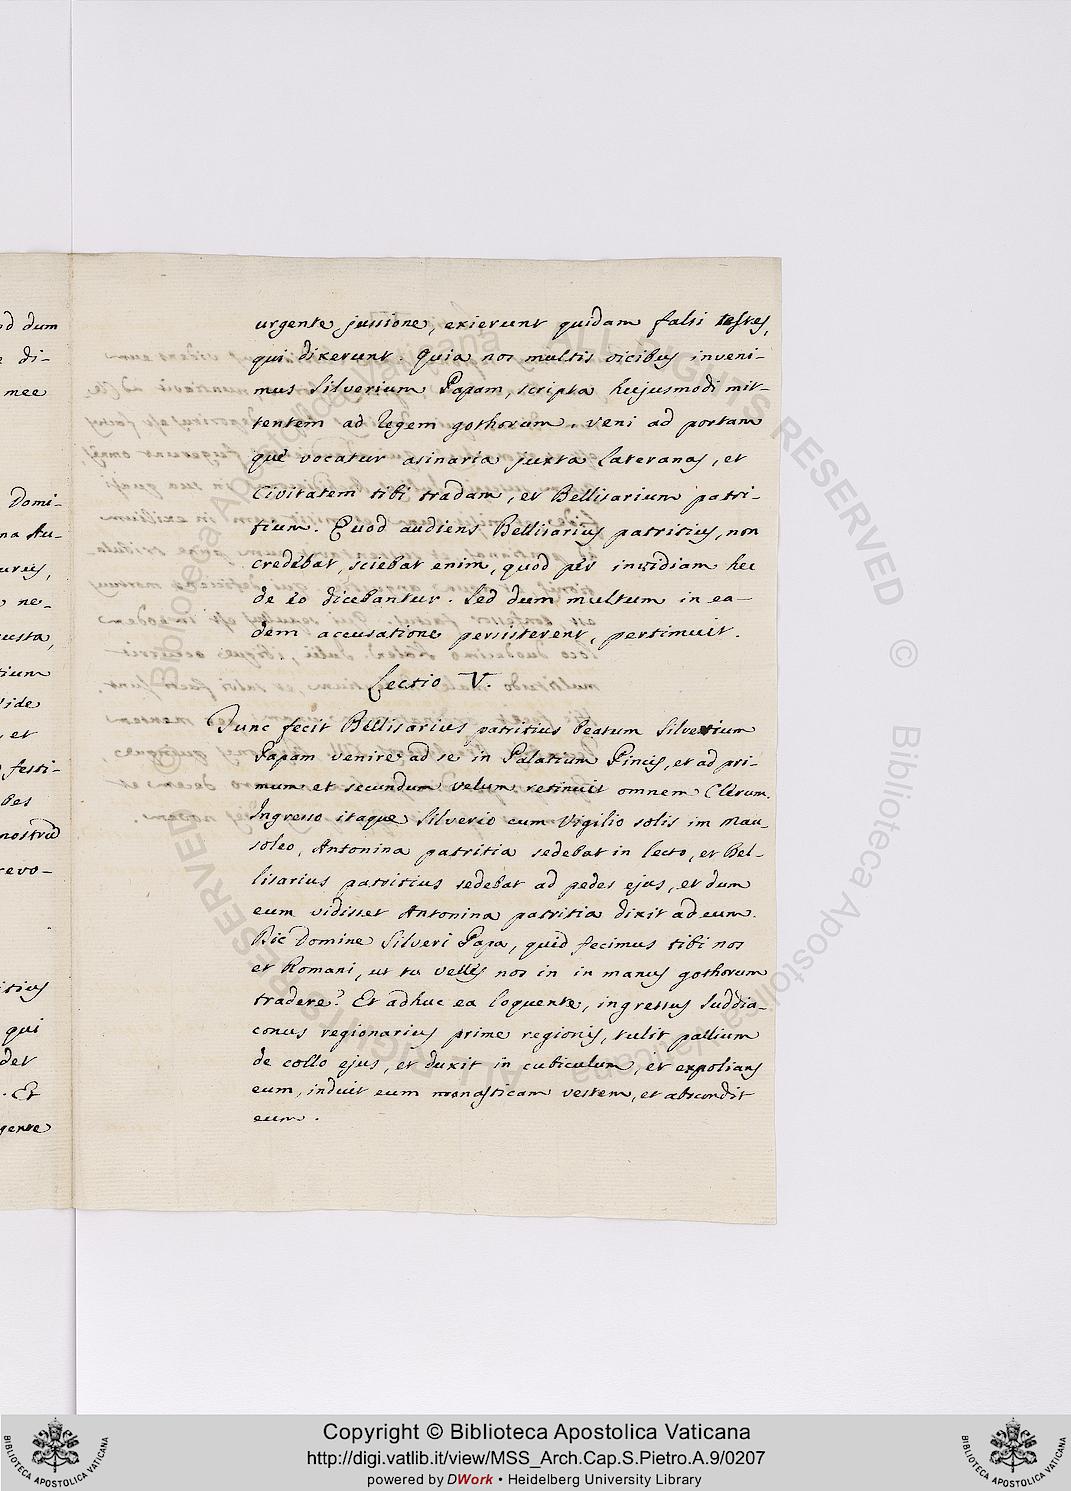 od dum
e di-
mee
Domi-
na Au-
ureis,
ne-
usta,
tium
vide
, et
festi-
bes
nostrū
revo-
itius
qui
det
. Et
gente
urgente jussione, exierunt quidam falsi testes,
qui dixerunt. Quia nos multis vicibus inveni-
mus Silverium Papam, scripta hujusmodi mit-
tentem ad Regem gothorum. veni ad portam
que vocatur asinaria juxta lateranas, et
Civitatem tibi tradam, et Bellisarium patri-
tium. Quod audiens Bellisarius patritius, non
credebat, sciebat enim, quod per invidiam hec
de eo dicebantur. Sed dum multum in ea-
dem accusatione persisterent, pertimuit.
Lectio V.
Tunc fecit Bellisarius patritius beatum Silverium
Papam venire ad se in Palatium Pincis, et ad pri-
mum et secundum velum retinuit omnem Clerum.
Ingresso itaque Silverio cum Vigilio solis im Mau-
soleo, Antonina patritia sedebat in lecto, et Bel-
lisarius patritius sedebat ad pedes ejus, et dum
eum vidisset Antonina patritia dixit ad eum.
Dic Domine Silveri Papa, quid fecimus tibi nos
et Romani, ut tu velles nos in in manus gothorum
tradere? Et adhuc ea loquente, ingressus Subdia-
conus regionarius prime regionis, tulit pallium
de collo ejus, et duxit in cubiculum, et expolians
eum, induit eum monasticam vestem, et abscondit
eum.
© Biblioteca Apostolica Vaticana ALL RIGHTS RESERVED
© Biblioteca Apostolica Vaticana ALL RIGHTS RESERVED
BIBLIOTECA APOSTOLICA VATICANA
Copyright © Biblioteca Apostolica Vaticana
http://digi.vatlib.it/view/MSS_Arch.Cap.S.Pietro.A.9/0207
powered by DWork • Heidelberg University Library
BIBLIOTECA APOSTOLICA VATICANA